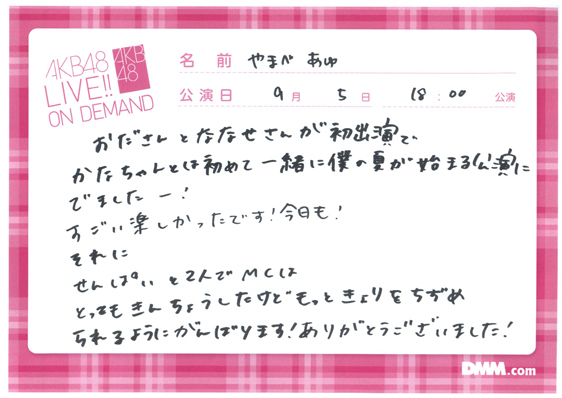 AKB48
LIVE!!
ON DEMAND
AKB
48
名 前 やまべ あゆ
公演日 9月 5日 18:00 公演
おださんとななせさんが初出演で、
かなちゃんとは初めて一緒に僕の夏が始まる公演に
でましたー!
すごい楽しかったです!今日も!
それに
せんぱいと2人でMCは
とってもきんちょうしたけどもっときょりをちぢめ
られるようにがんばります!ありがとうございました!
DMM.com